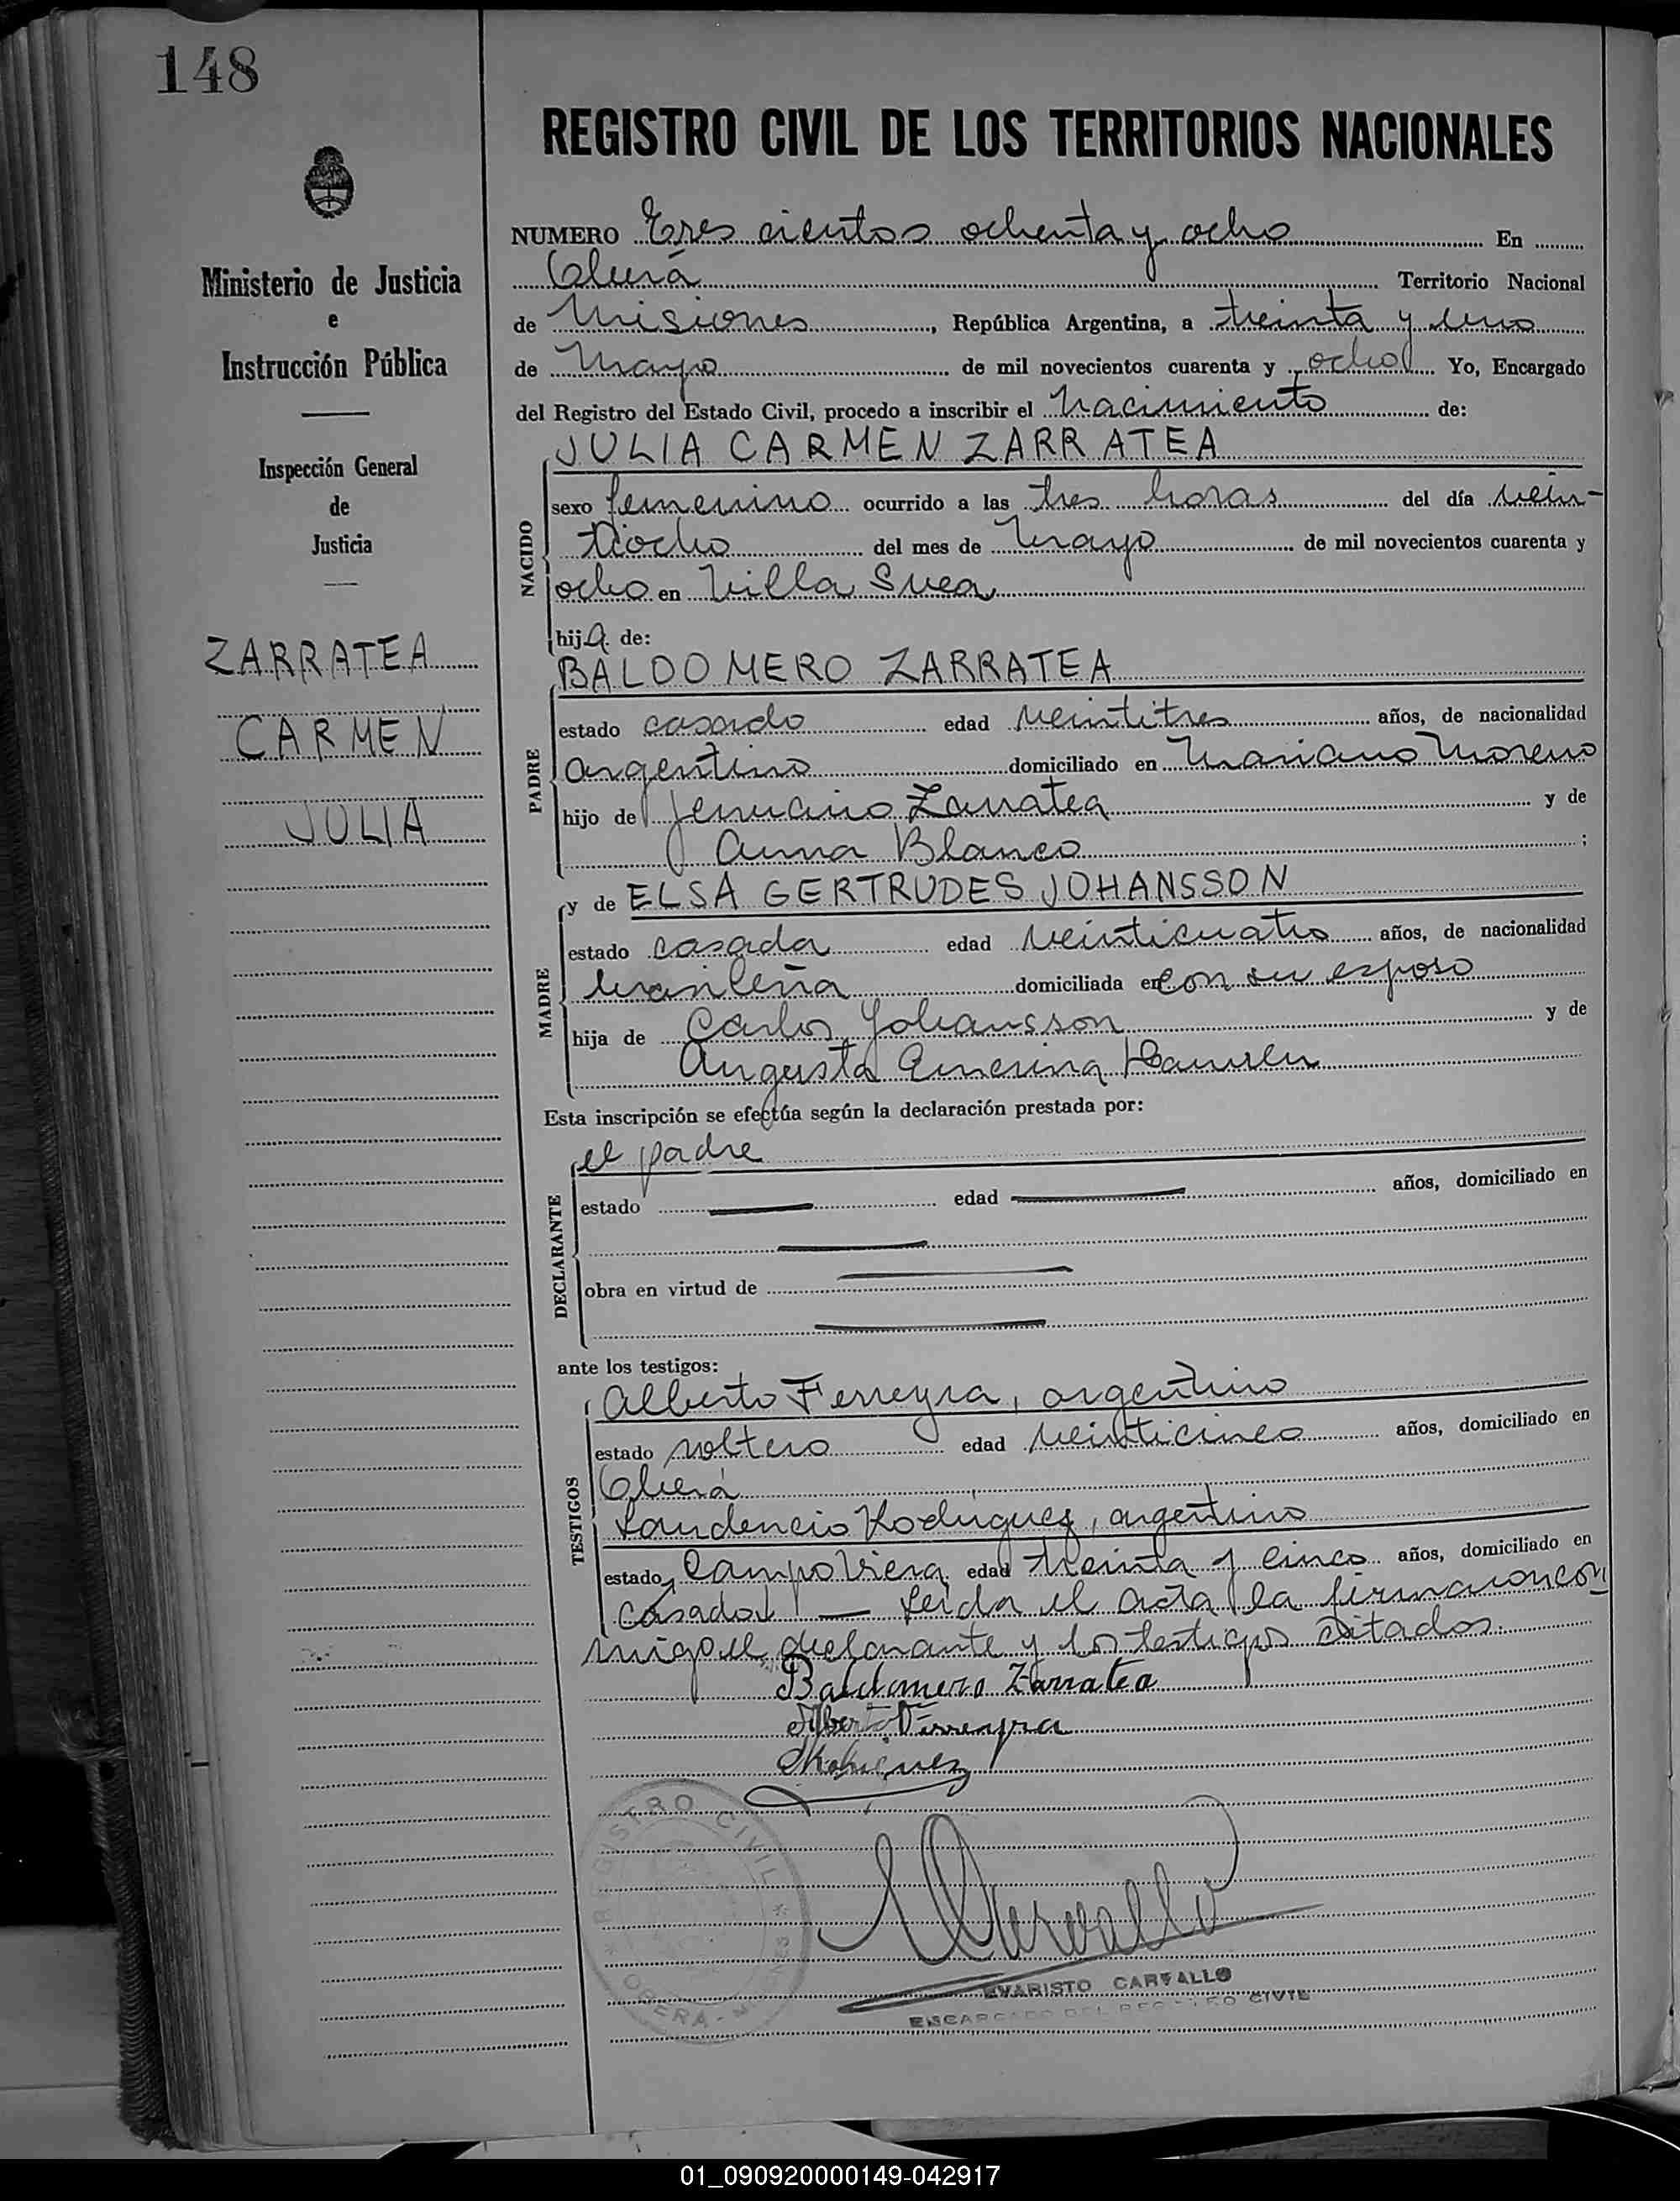 148
REGISTRO CIVIL DE LOS TERRITORIOS NACIONALES
Ministerio de Justicia
e
Instrucción Pública
Inspección General
de
Justicia
ZARRATEA
CARMEN
JULIA
NUMERO Tres cientos ochenta y ocho En
Oberá Territorio Nacional
de Misiones, República Argentina, a treinta y uno
de Mayo de mil novecientos cuarenta y ocho Yo, Encargado
del Registro del Estado Civil, procedo a inscribir el Nacimiento de:
JULIA CARMEN ZARRATEA
NACIDO
sexo femenino ocurrido a las tres horas del día vein-
tiocho del mes de Mayo de mil novecientos cuarenta y
ocho en Villa Svea
hija de:
BALDOMERO ZARRATEA
PADRE
estado casado edad veintitres años, de nacionalidad
argentino domiciliado en Mariano Moreno
hijo de Zarratea y de
Anna Blanco ;
y de ELSA GERTRUDES JOHANSSON
MADRE
estado casada edad veinticuatro años, de nacionalidad
brasileña domiciliada en con su esposo
hija de Carlos Johansson y de
Augusta
Esta inscripción se efectúa según la declaración prestada por:
el padre
DECLARANTE
estado edad años, domiciliado en
obra en virtud de
ante los testigos:
Alberto Ferreyra, argentino
TESTIGOS
estado soltero edad veinticinco años, domiciliado en
Oberá
Laudencio Rodriguez, argentino
estado Campo Viera edad treinta y cinco años, domiciliado en
casado. — Leida el acta la firmaron con
migo el declarante y los testigos citados.
Baldomero Zarratea
Alberto Ferreyra
REGISTRO CIVIL
OBERA - MISIONES
EVARISTO CARVALLO
ENCARGADO DEL REGISTRO CIVIL
01_090920000149-042917